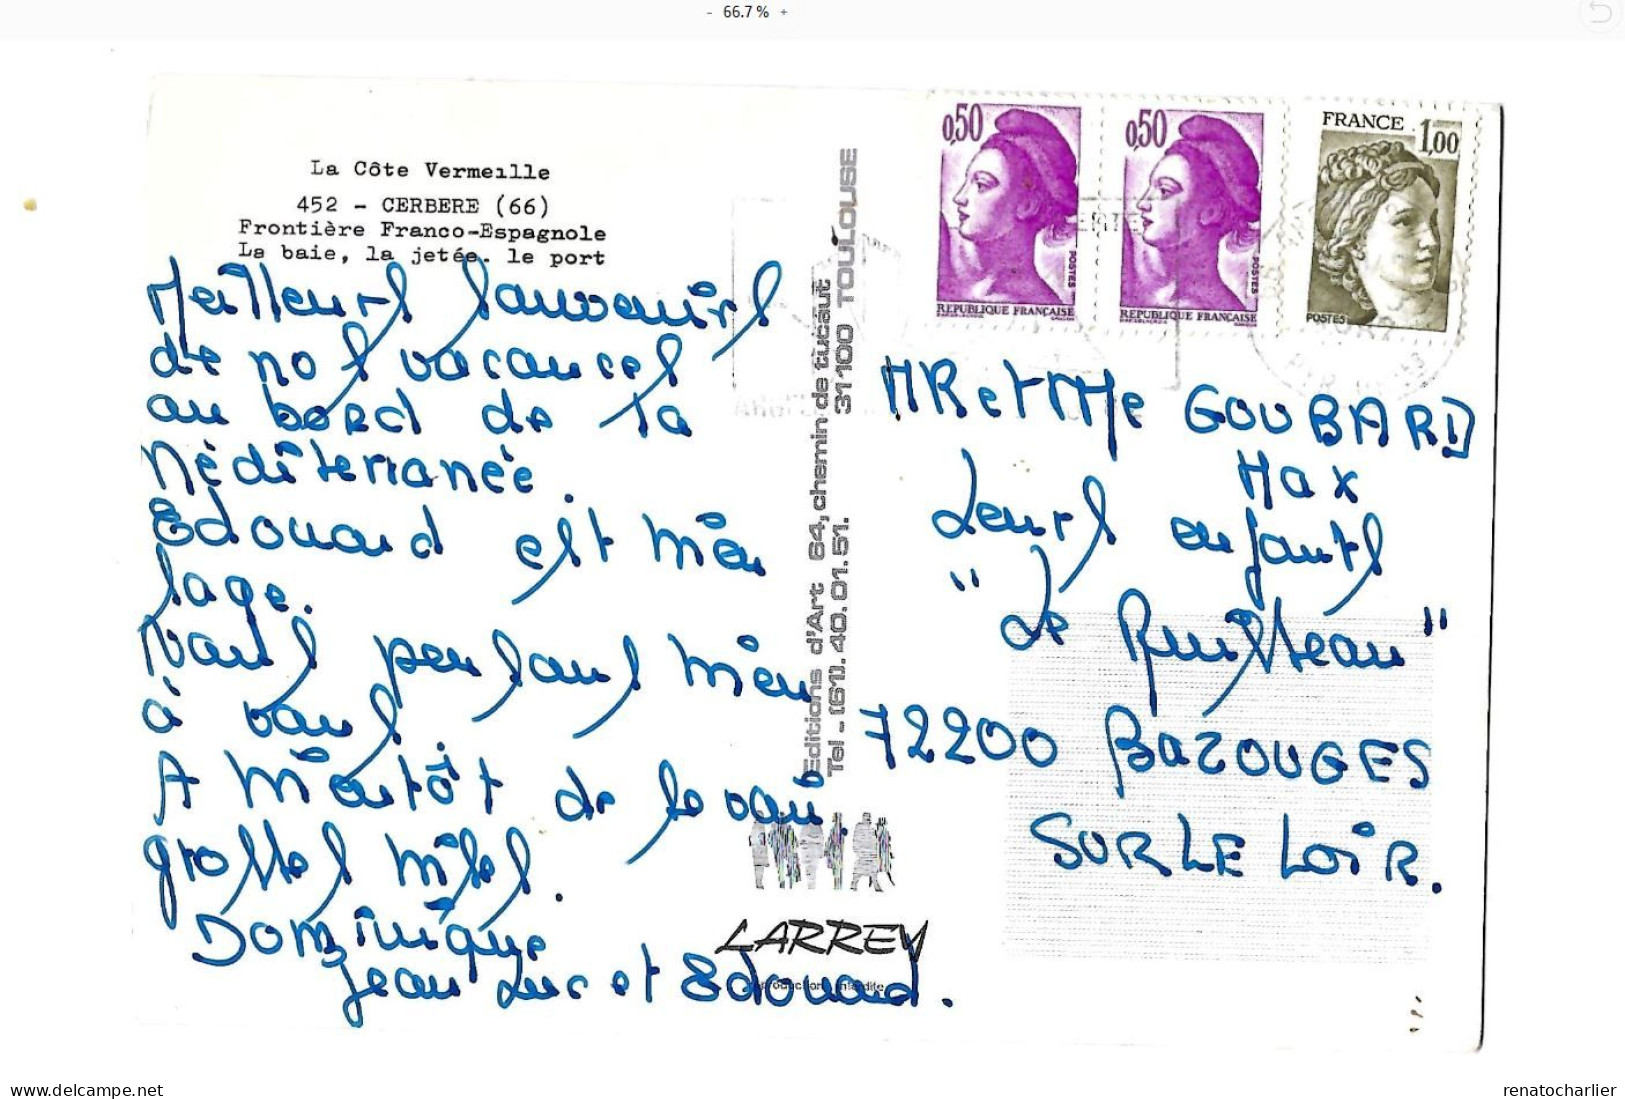 - 66.7 % +
La Côte Vermeille
452 - CERBERE (66)
Frontière Franco-Espagnole
La baie, la jetée. le port
Meilleurs souvenirs
de nos vacances
au bord de la
Méditerranée.
Edouard est bien
sage.
Nous pensons bien
à vous
A bientôt de se voir.
grosses bises.
Dominique
Jean Luc et Edouard.
Editions d'Art 64, chemin de tucaut
Tel - (61). 40.01.51. 31100 TOULOUSE
LARREY
reproduction interdite
0,50
POSTES
REPUBLIQUE FRANÇAISE
0,50
POSTES
REPUBLIQUE FRANÇAISE
FRANCE 1,00
POSTES
MR et MMe GOUBARD
Max
Leurs enfants
"Le Ruisseau"
72200 BAZOUGES
SUR LE LOIR.
www.delcampe.net
renatocharlier